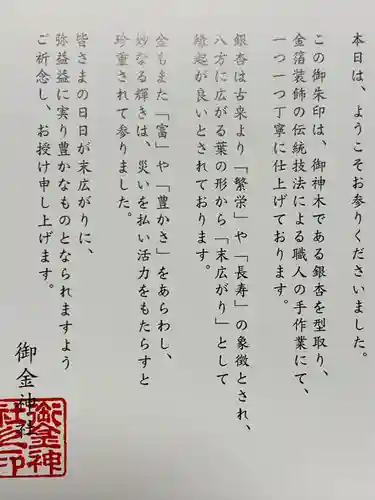 本日は、ようこそお参りくださいました。
この御朱印は、御神木である銀杏を型取り、
金箔装飾の伝統技法による職人の手作業にて、
一つ一つ丁寧に仕上げております。
銀杏は古来より「繁栄」や「長寿」の象徴とされ、
八方に広がる葉の形から「末広がり」として
縁起が良いとされております。
金もまた「富」や「豊かさ」をあらわし、
妙なる輝きは、災いを払い活力をもたらすと
珍重されて参りました。
皆さまの日日が末広がりに、
弥益益に実り豊かなものとなられますよう
ご祈念し、お授け申し上げます。
御金神社
御金神
社之印